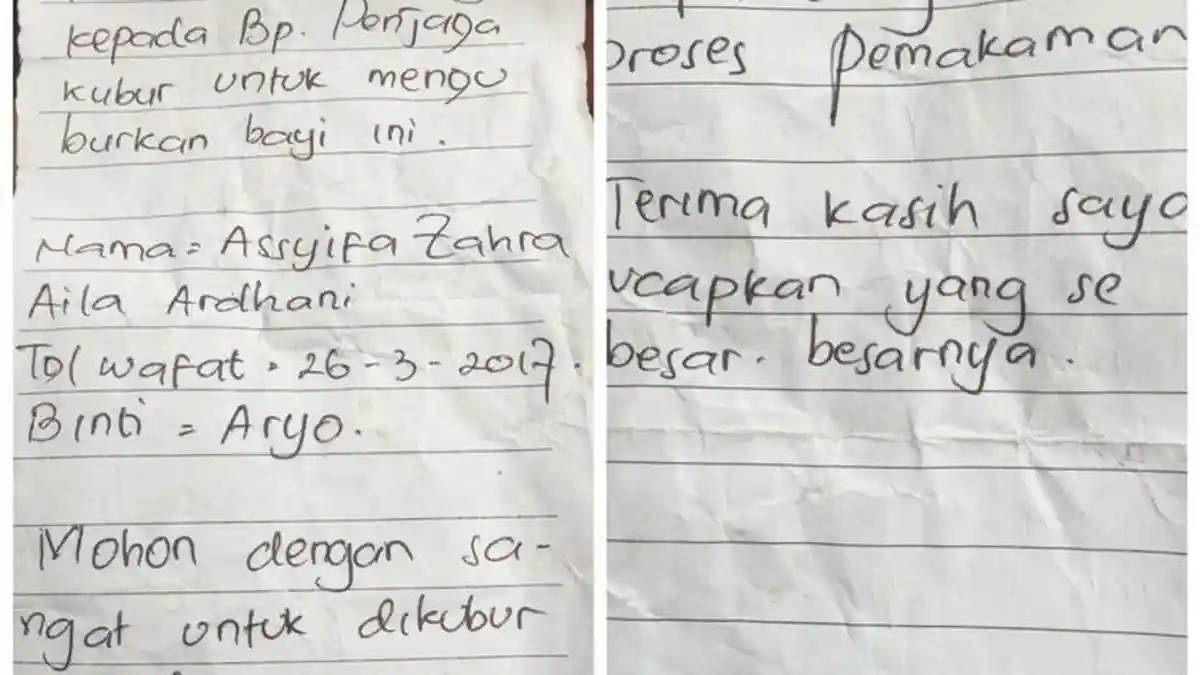 kepada Bp. Penjaga
kubur untuk mengu
burkan bayi ini.
Nama = Assyifa Zahra
Aila Ardhani
Tgl wafat = 26-3-2017.
Binti = Aryo.
Mohon dengan sa-
ngat untuk dikubur
proses pemakaman
Terima kasih saya
ucapkan yang se
besar. besarnya.